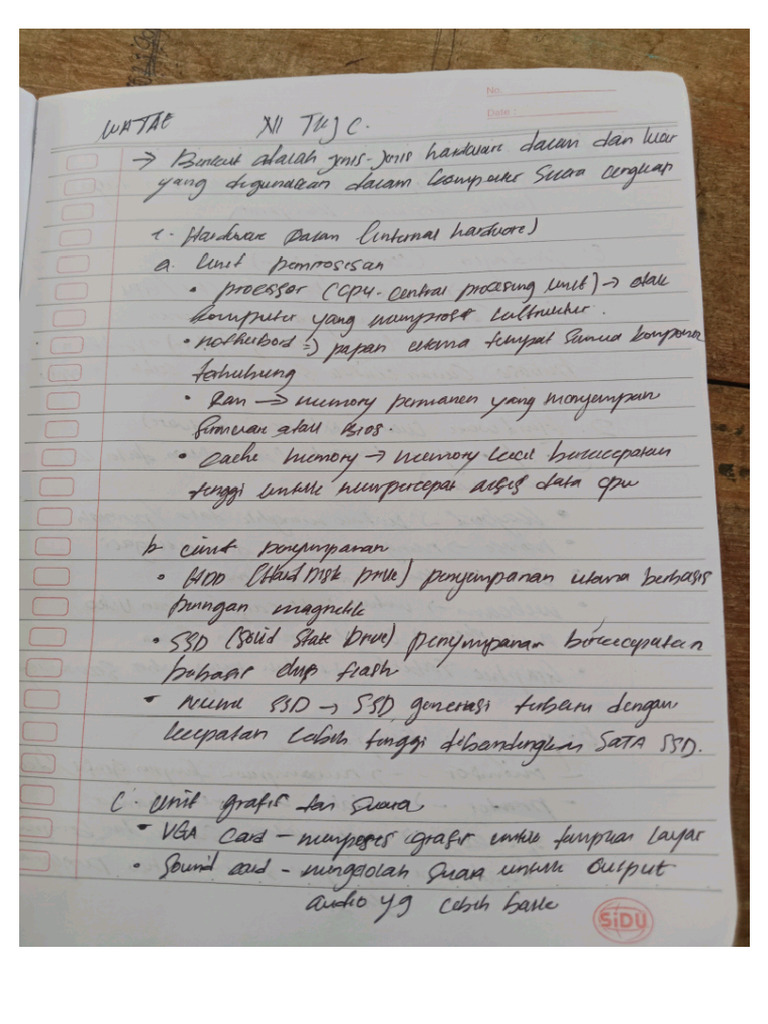 No.
Date :
WATAE XII TKJ C.
→ Berikut adalah jenis-jenis hardware dalam dan luar
yang digunakan dalam komputer secara lengkap
1. Hardware dalam (internal hardware)
a. Unit pemrosesan
• processor (CPU - central procesing unit) → otak
komputer yang memproses
• motherbord => papan utama tempat semua komponen
terhubung
• Ram → memory permanen yang menyimpan
firmware atau Bios.
• Cache memory → memory kecil berkecepatan
tinggi untuk mempercepat akses data cpu
b. unit penyimpanan
• HDD (Hard Disk Drive) penyimpanan utama berbasis
piringan magnetik
• SSD (Solid State Drive) penyimpanan berkecepatan
berbasis chip flash
• NVME SSD → SSD generasi terbaru dengan
kecepatan lebih tinggi dibandingkan SATA SSD.
C. Unit grafis dan suara
• VGA Card - memproses grafis untuk tampilan layar
• Sound card - mengolah suara untuk output
audio yg lebih baik
SiDU